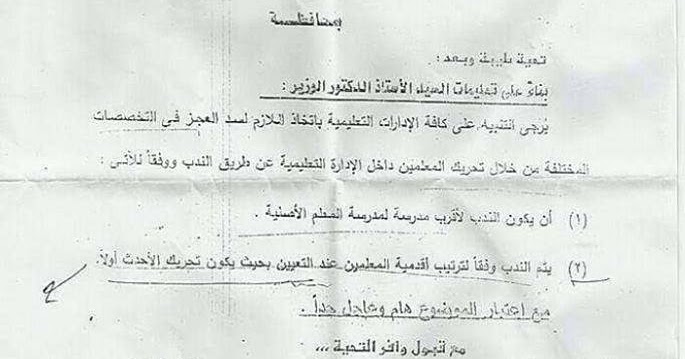 بمحافظــة
تحية طيبة وبعد :
بناءً على تعليمات السيد الأستاذ الدكتور الوزير :
يُرجى التنبيه على كافة الإدارات التعليمية باتخاذ اللازم لسد العجز فى التخصصات
المختلفة من خلال تحريك المعلمين داخل الإدارة التعليمية عن طريق الندب ووفقاً للآتى :
(١) أن يكون الندب لأقرب مدرسة لمدرسة المعلم الأصلية .
(٢) يتم الندب وفقاً لترتيب أقدمية المعلمين عند التعيين بحيث يكون تحريك الأحدث أولاً.
مع اعتبار الموضوع هام وعاجل جداً .
مع قبول وافر التحية ,,,